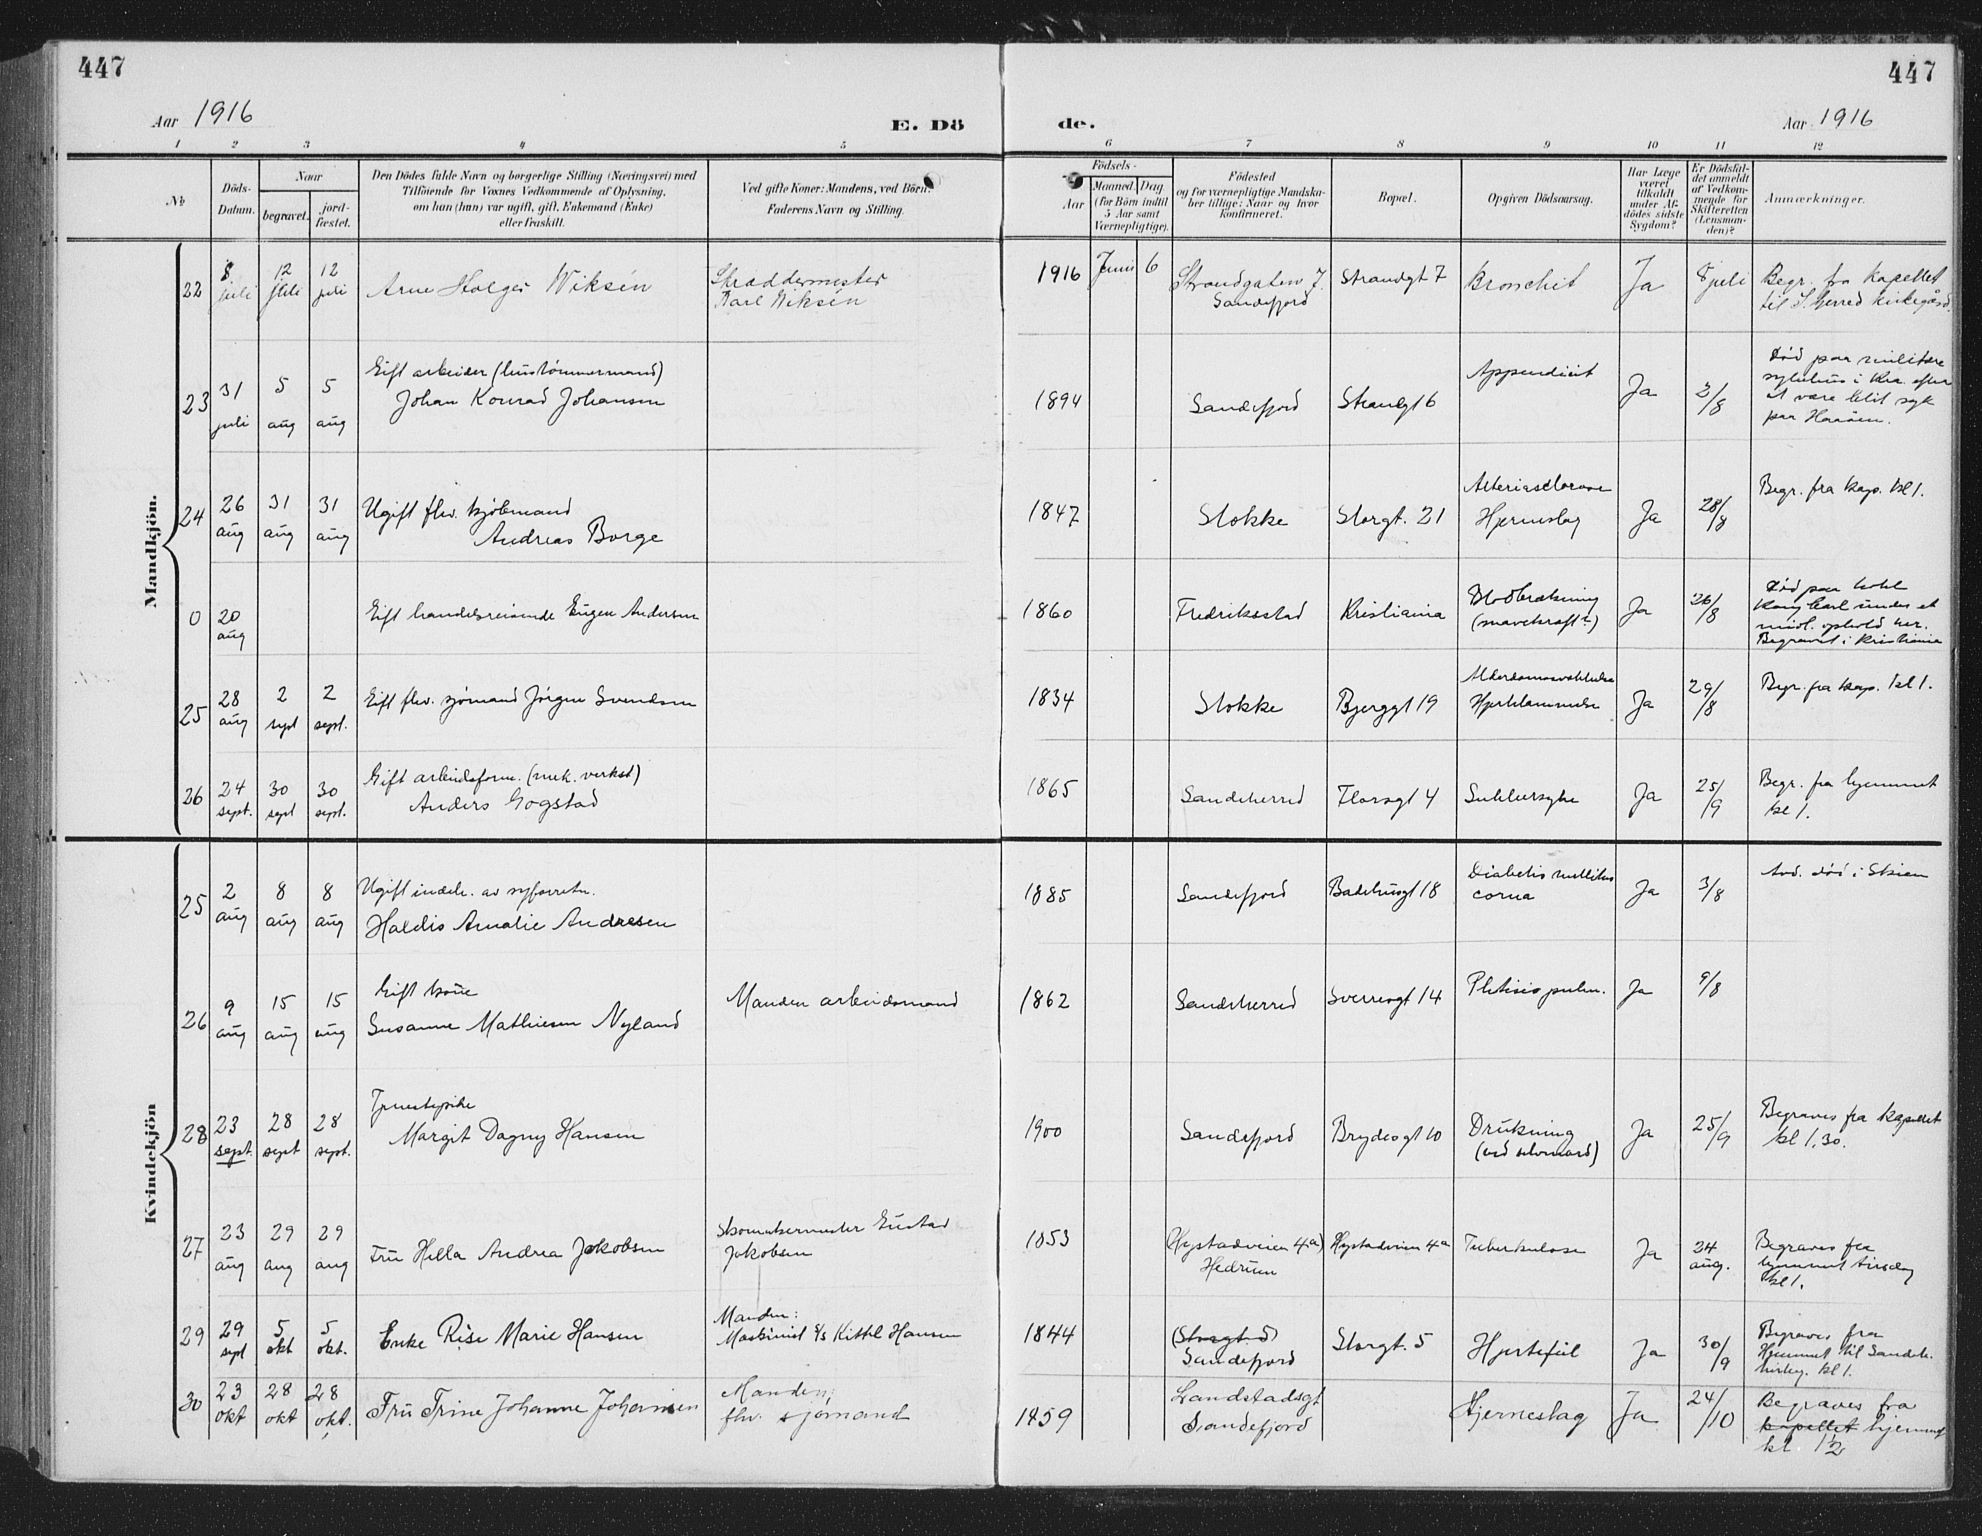 447
447
Aar 1916
E. Dö
de.
Aar 1916
1 2 3 4 5 6 7 8 9 10 11 12
№
Döds-Datum.
Naar
begravet.
jord-fæstet.
Den Dödes fulde Navn og borgerlige Stilling (Næringsvei) med
Tilföiende for Voxnes Vedkommende af Oplysning,
om han (hun) var ugift, gift, Enkemand (Enke)
eller fraskilt.
Ved gifte Koner: Mandens, ved Börn:
Faderens Navn og Stilling.
Födsels-
Aar
Maaned. Dag
(for Börn indtil
5 Aar samt
Værnepligtige).
Födested
og for værnepligtige Mandska-
ber tillige: Naar og hvor
konfirmeret.
Bopæl.
Opgiven Dödsaarsag.
Har Læge
været
tilkaldt
under Af-
dödes sidste
Sygdom?
Er Dödsfal-
det anmeldt
af Vedkom-
mende for
Skifteretten
(Lensman-
den)?
Anmærkninger.
Mandkjön.
22 8 juli 12 juli 12 juli Arne Holger Wiksén Skræddermester Karl Wiksén 1916 Juni 6 Strandgaten 7. Sandefjord Strandgt 7 Bronchit Ja 8 juli Begr. fra kapellet til S.herred kirkegård.
23 31 juli 5 aug 5 aug Gift arbeider (hustømmermand) Johan Konrad Johansen 1894 Sandefjord Strandgt 6 Appendicit Ja 2/8 Død paa militære sykehus i Kra. efter at være blit syk paa
24 26 aug 31 aug 31 aug Ugift fhv. kjøbmand Andreas Borge 1847 Stokke Storgt. 21 Hjerneslag Ja 28/8 Begr. fra kap. kl 1.
0 20 aug Gift handelsreisende Eugen Andersen 1860 Fredriksstad Kristiania Blodbrækning (mavekræft?) Ja 26/8 Død paa hotel Kong Carl under et midl. ophold her. Begravet i Kristiania
25 28 aug 2 sept 2 sept. Gift fhv. sjømand Jørgen Svendsen 1834 Stokke Bjerggt 19 Hjertelammelse Ja 29/8 Begr. fra kap. kl 1.
26 24 sept. 30 sept 30 sept. Gift arbeidsform. (mek. verkst) Anders Gogstad 1865 Sandeherred Florsgt 4 Sukkersyke Ja 25/9 Begr. fra hjemmet kl 1.
Kvindekjön
25 2 aug 8 aug 8 aug Ugift indeh. av syforretn. Haldis Amalie Andresen 1885 Sandefjord Badehusgt 18 Diabetis mellitus coma Ja 3/8 død i Skien
26 9 aug 15 aug 15 aug Gift kone Susanne Mathisen Nyland Manden arbeidsmand 1862 Sandeherred Sverresgt 14 Phtisis pulm. Ja 9/8
28 23 sept. 28 sept 28 sept. Tjenestepike Margit Dagny Hansen 1900 Sandefjord Brydesgt 10 Drukning (ved selvmord) Ja 25/9 Begraves fra kapellet kl 1.30.
27 23 aug 29 aug 29 aug Fru Hella Andrea Jakobsen Skomakermester Gustav Jakobsen 1853 (Hystadveien 4a) Hedrum Hystadveien 4a Tuberkulose Ja 24 aug. Begraves fra hjemmet tirsdag kl 1.
29 29 sept 5 okt 5 okt. Enke Rise Marie Hansen Manden: Maskinist Kittil Hansen 1844 Sandefjord Storgt. 5 Hjertefeil Ja 30/9 Begraves fra Hjemmet til Sandeh. kirkeg. kl 1.
30 23 okt 28 okt 28 okt. Fru Trine Johanne Johansen Manden, fhv. sjømand 1859 Landstadsgt Sandefjord Hjerneslag Ja 24/10 Begraves fra kapellet hjemmet kl 1½